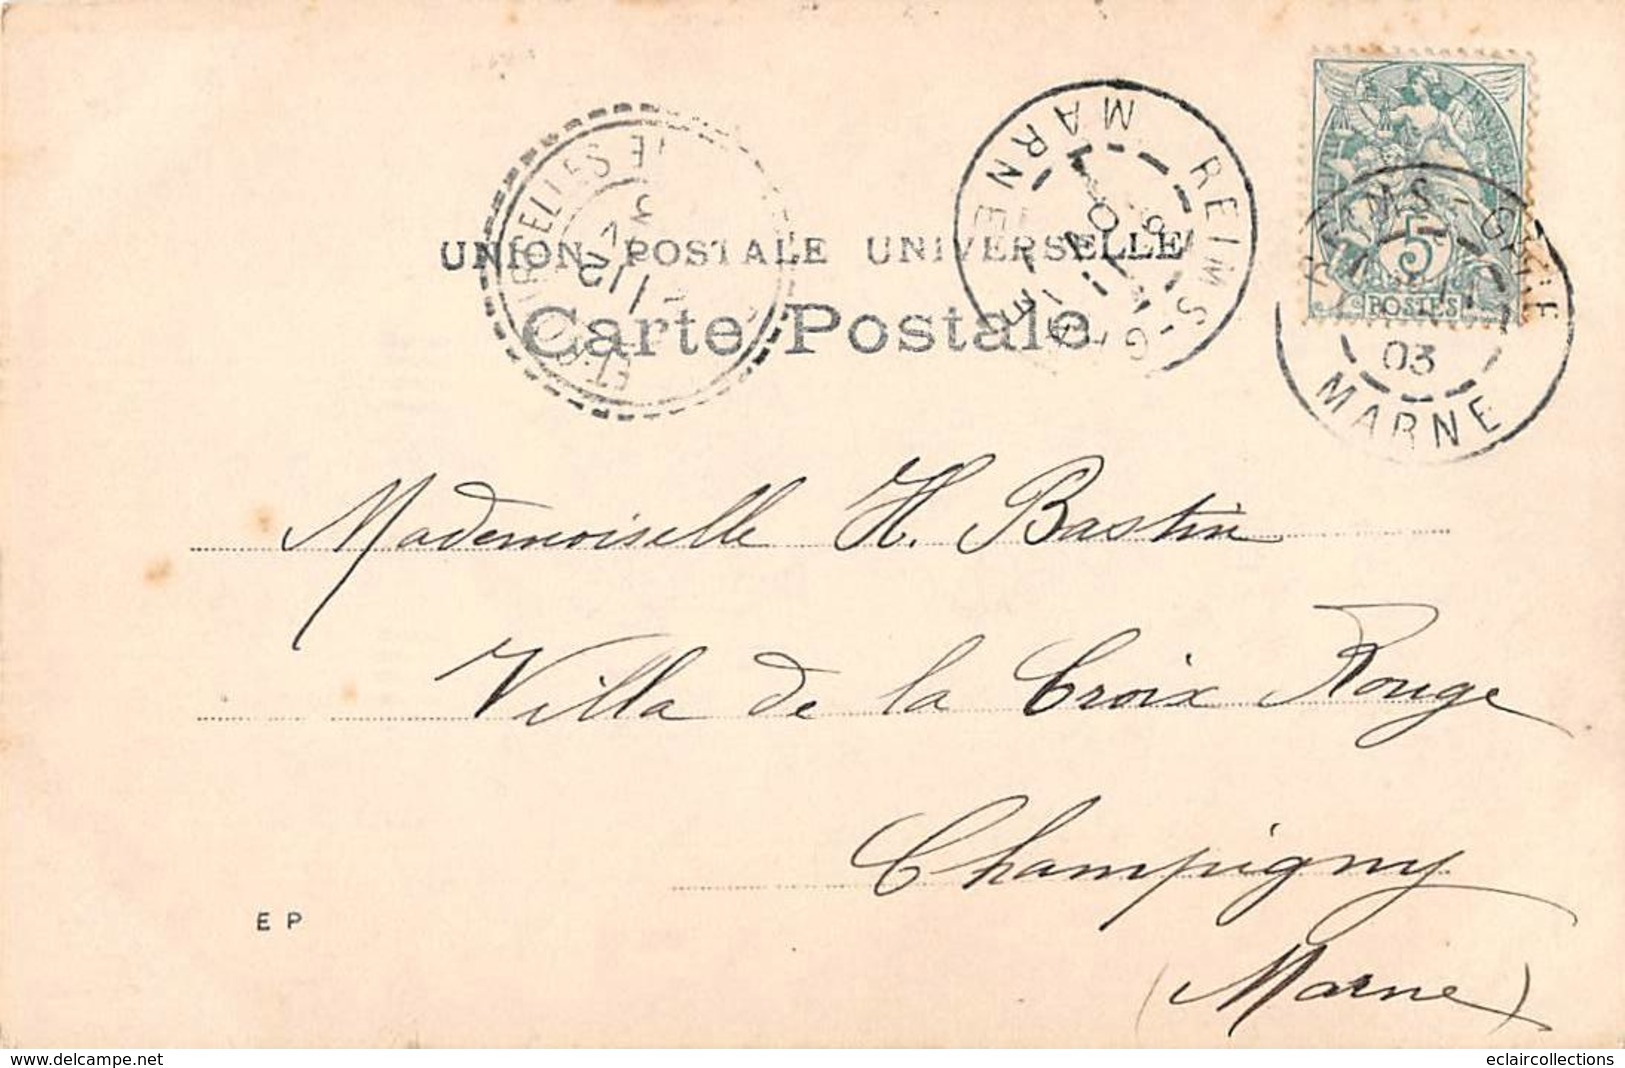 UNION POSTALE UNIVERSELLE
Carte Postale
REIMS-GARE
MARNE
REIMS-GARE
03
MARNE
5
POSTES
Mademoiselle H. Bastin
Villa de la Croix Rouge
Champigny
(Marne)
E P
www.delcampe.net
eclaircollections